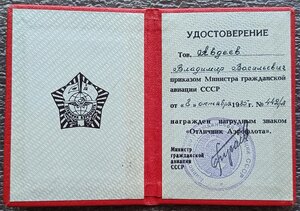 УДОСТОВЕРЕНИЕ
Тов. Авдеев
Владимир Васильевич
приказом Министра гражданской
авиации СССР
от
награжден нагрудным знаком
«Отличник Аэрофлота».
Министр
гражданской
авиации
СССР